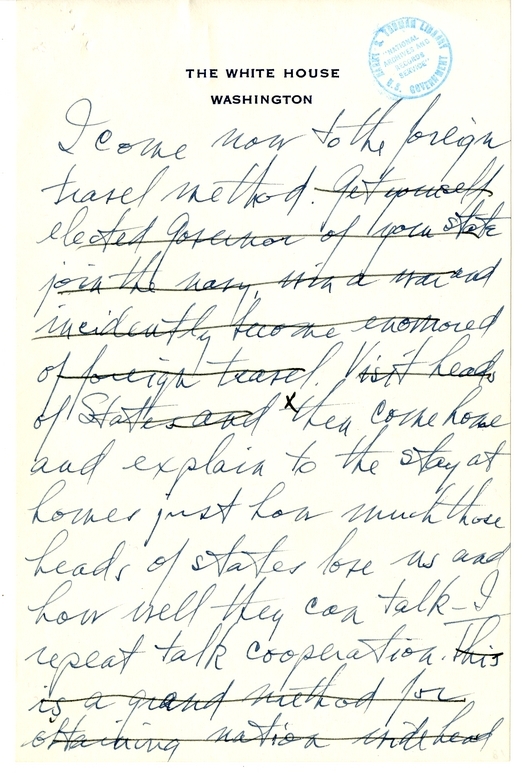 THE WHITE HOUSE
WASHINGTON
HARRY S. TRUMAN LIBRARY
"NATIONAL
ARCHIVES AND
RECORDS
SERVICE"
U.S. GOVERNMENT
I come now to the foreign
travel method. Get yourself
elected Governor of your state
join the navy, win a war and
incidently become enamored
of foreign travel. Visit heads
of States and x then come home
and explain to the stay at
homes just how much those
heads of states love us and
how well they can talk - I
repeat talk cooperation. This
is a grand method for
obtaining nation wide head